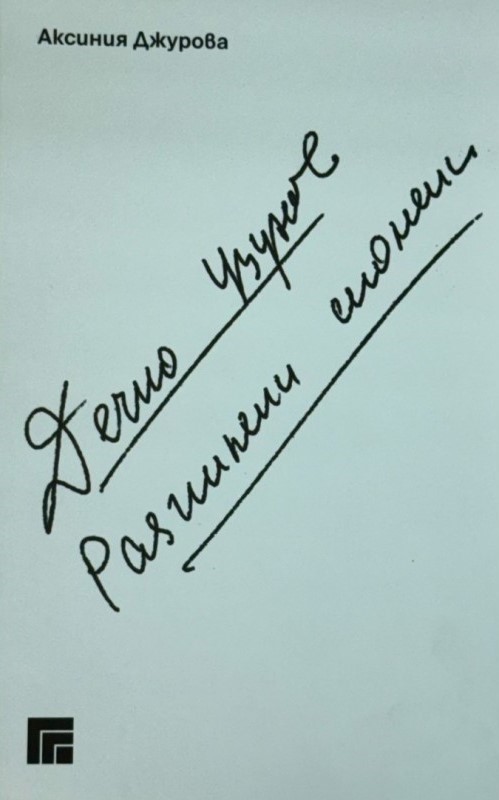 Аксиния Джурова
Дечко Узунов
Разпилени спомени